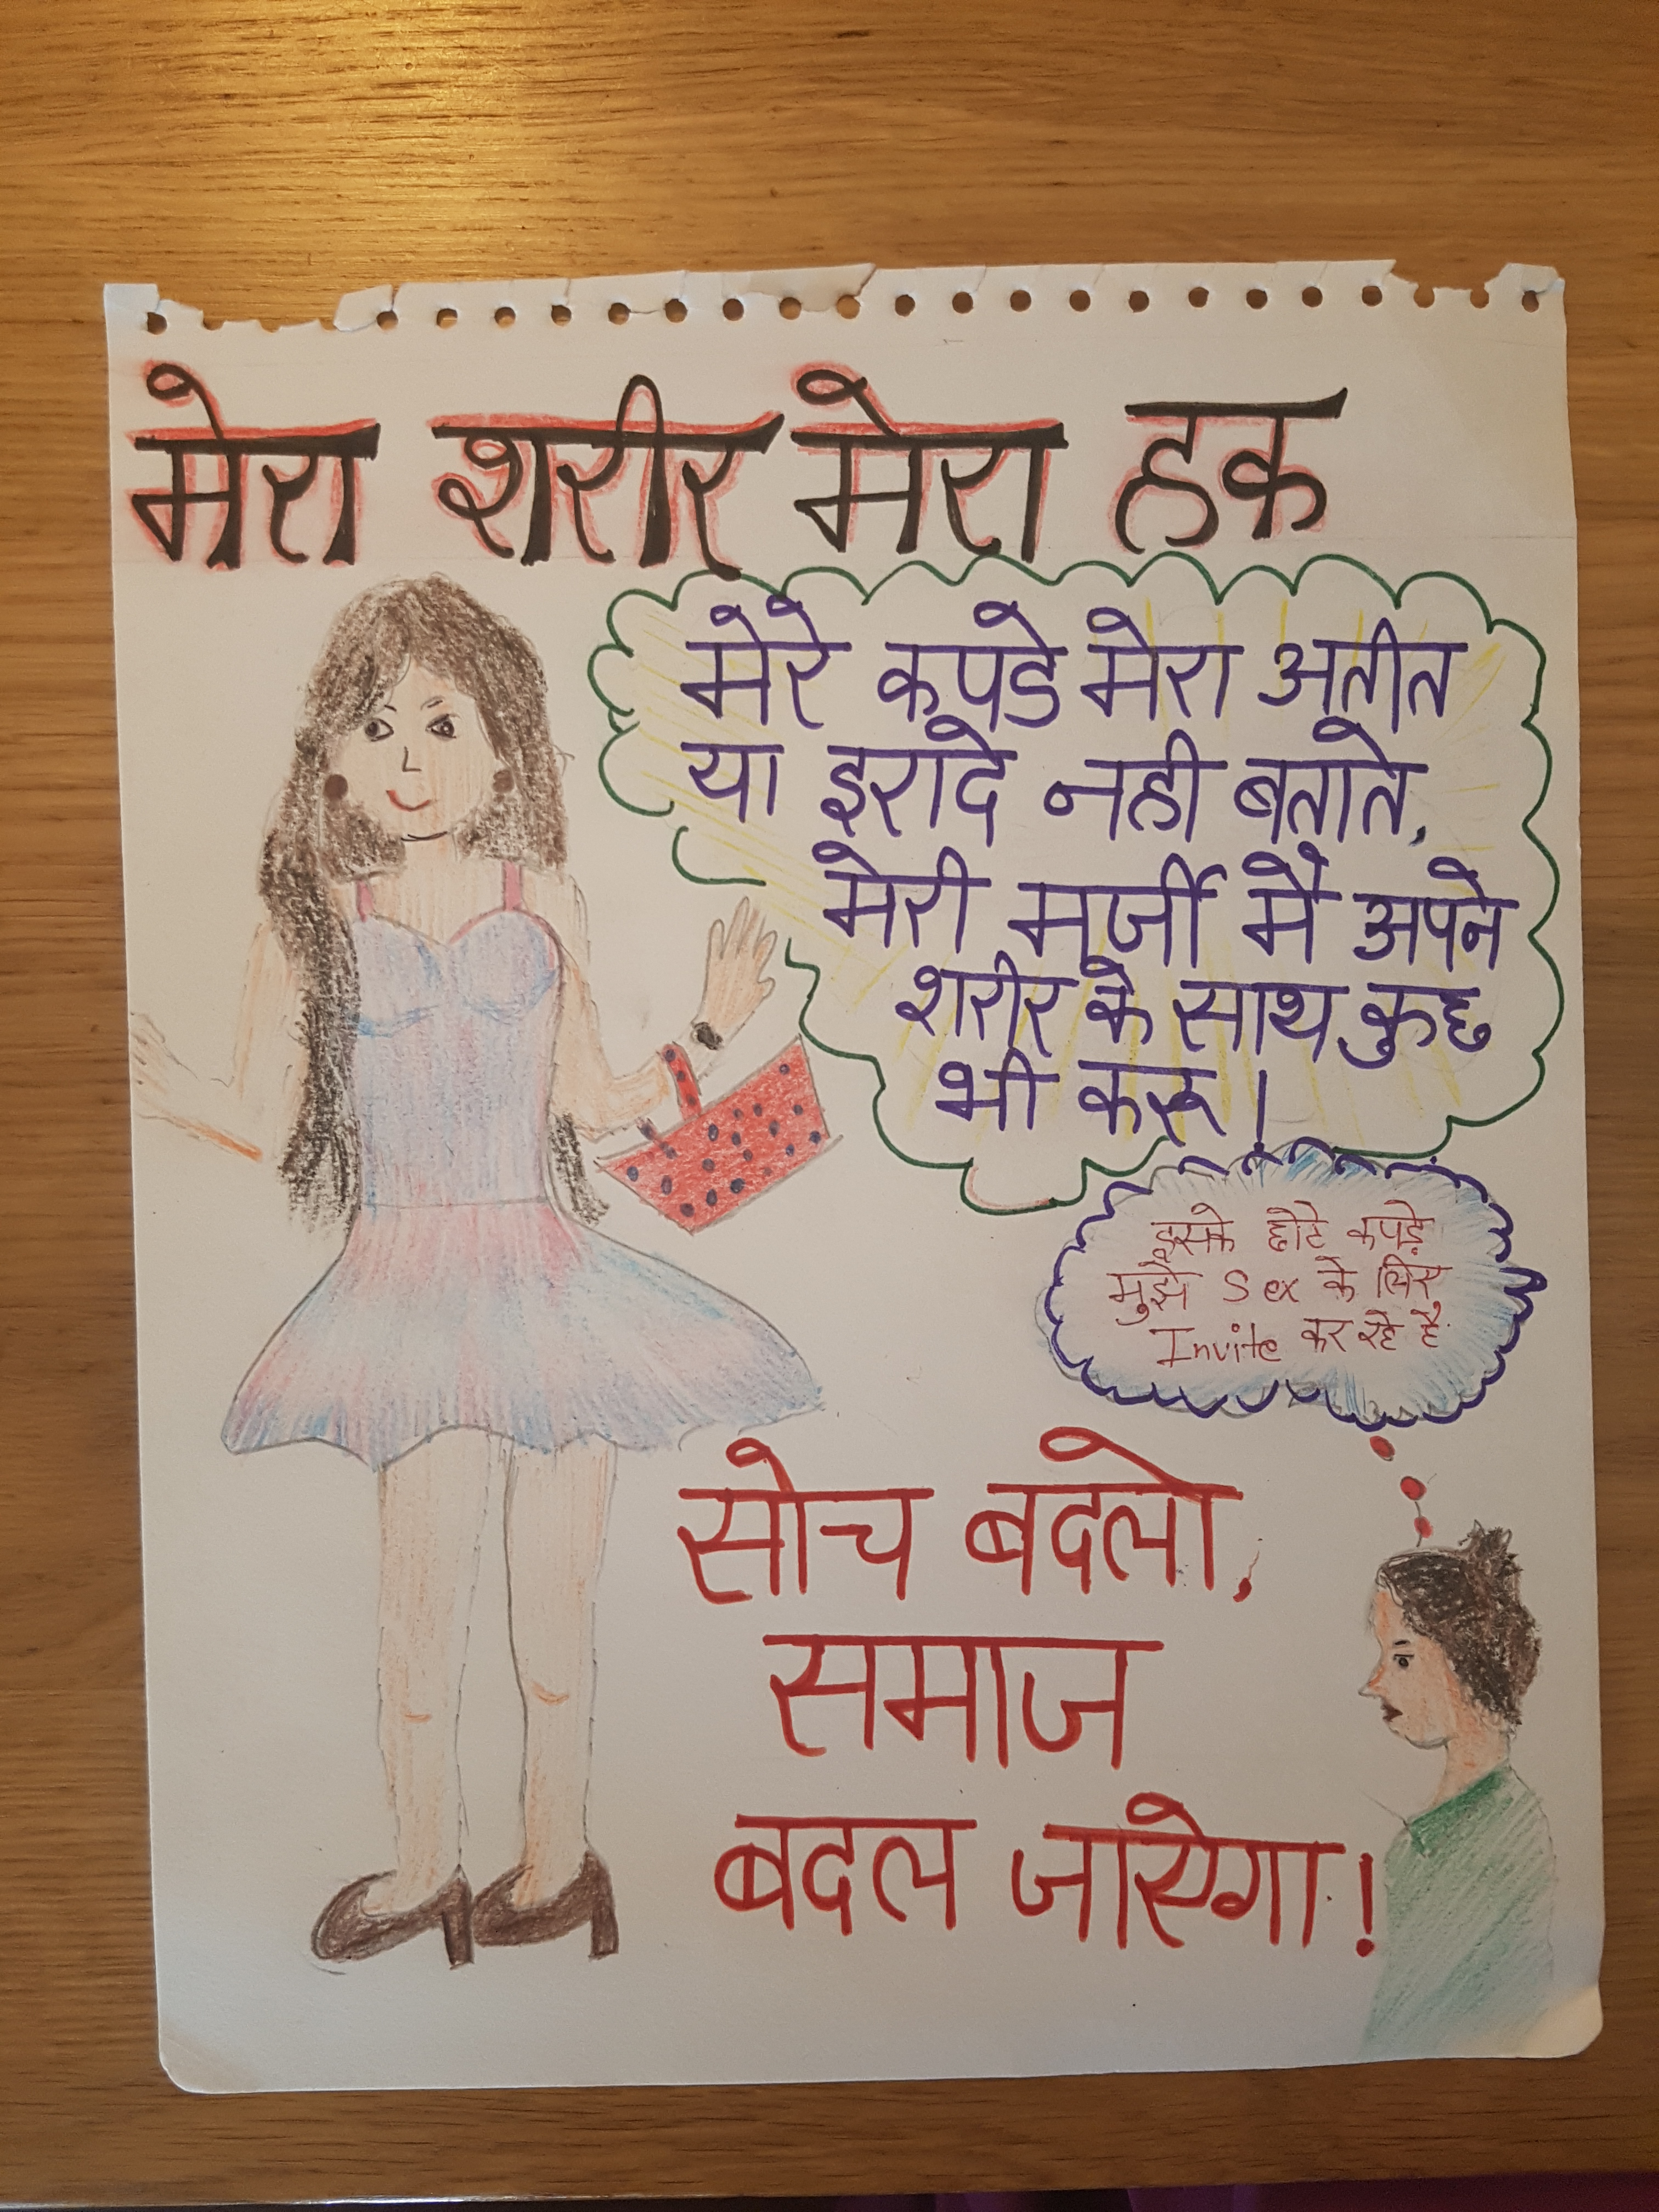 मेरा शरीर मेरा हक
मेरे कपडे मेरा अतीत
या इरादे नही बताते,
मेरी मर्जी मै अपने
शरीर के साथ कुछ
भी करू!
इसके छोटे कपड़े
मुझे Sex के लिए
Invite कर रहे है
सोच बदलो,
समाज
बदल जाएगा!